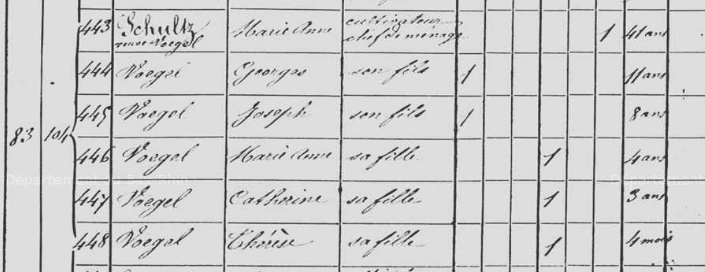 443 Schultz Marie Anne cultivateur 1 41 ans
veuve Voegel chef de ménage
444 Voegel Georges son fils 1 11 ans
445 Voegel Joseph son fils 1 8 ans
83 104
446 Voegel Marie Anne sa fille 1 4 ans
447 Voegel Catherine sa fille 1 3 ans
448 Voegel Thérèse sa fille 1 4 mois